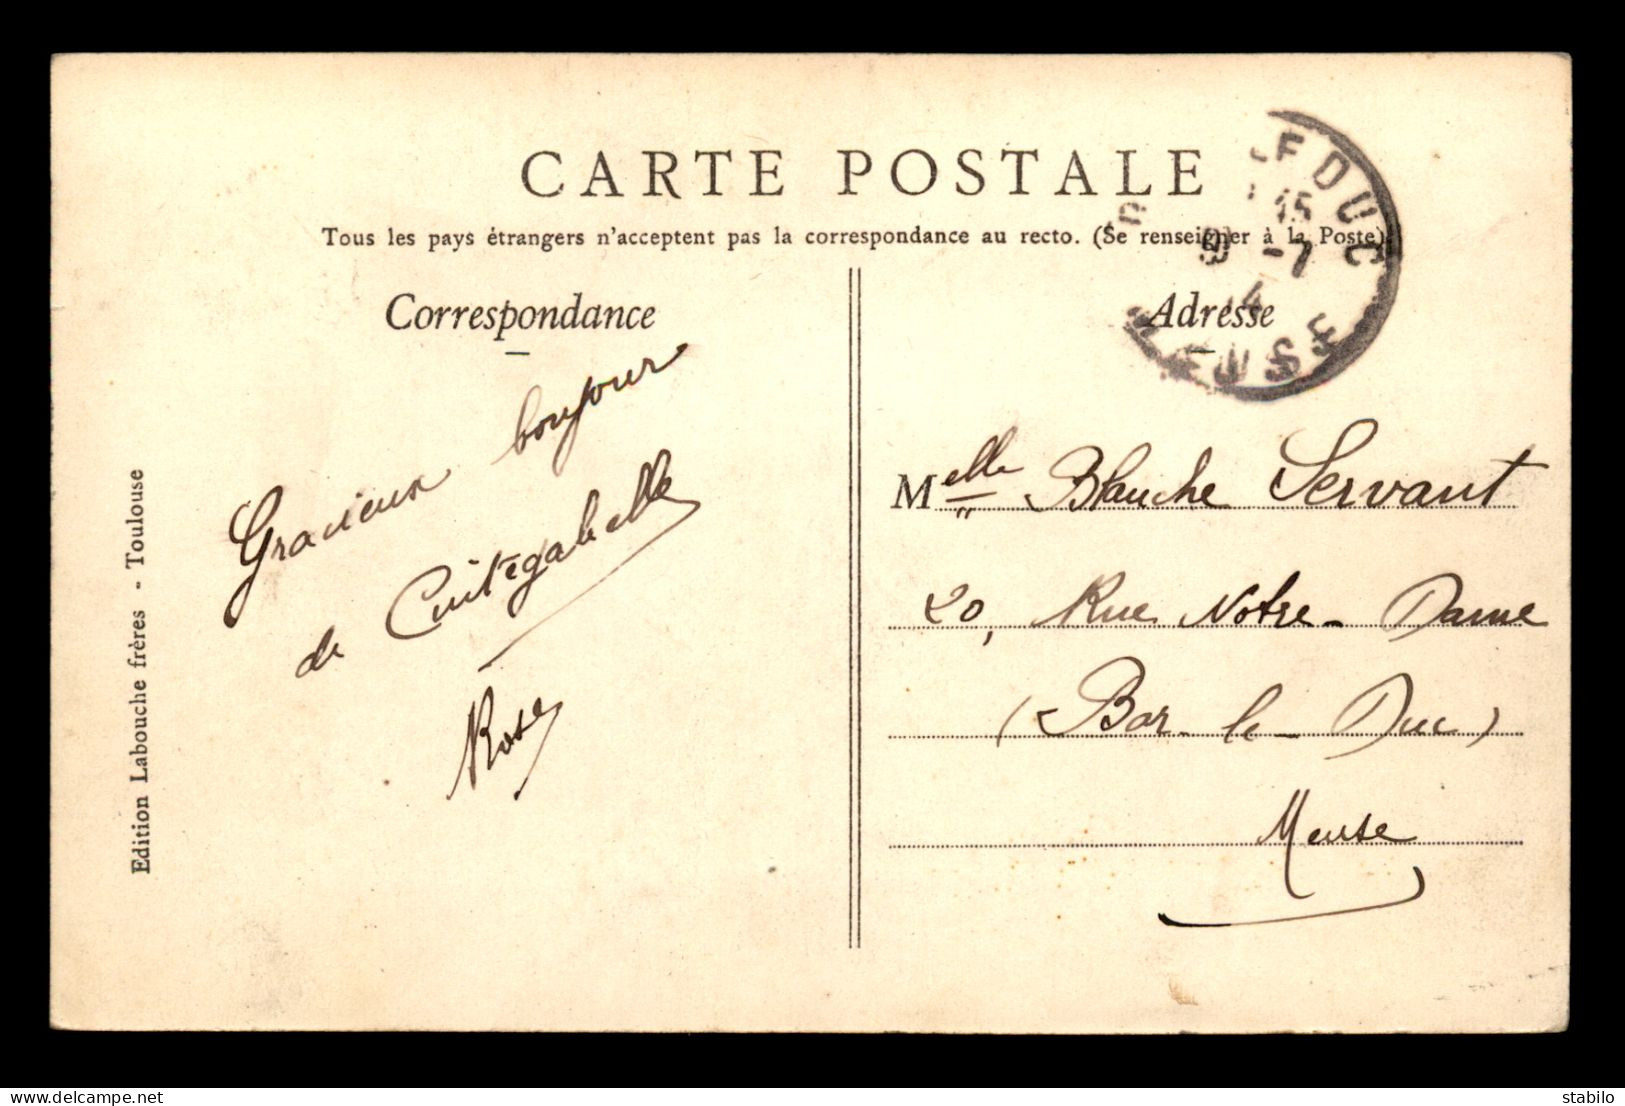 CARTE POSTALE
Tous les pays étrangers n'acceptent pas la correspondance au recto. (Se renseigner à la Poste).
Correspondance
Adresse
Gracieux bonjour
de Cintegabelle
Rose
Melle Blanche Servant
20, Rue Notre-Dame
(Bar-le-Duc)
Meuse
Edition Labouche frères - Toulouse
DUC
15
9 -7
14
MEUSE
www.delcampe.net
stabilo